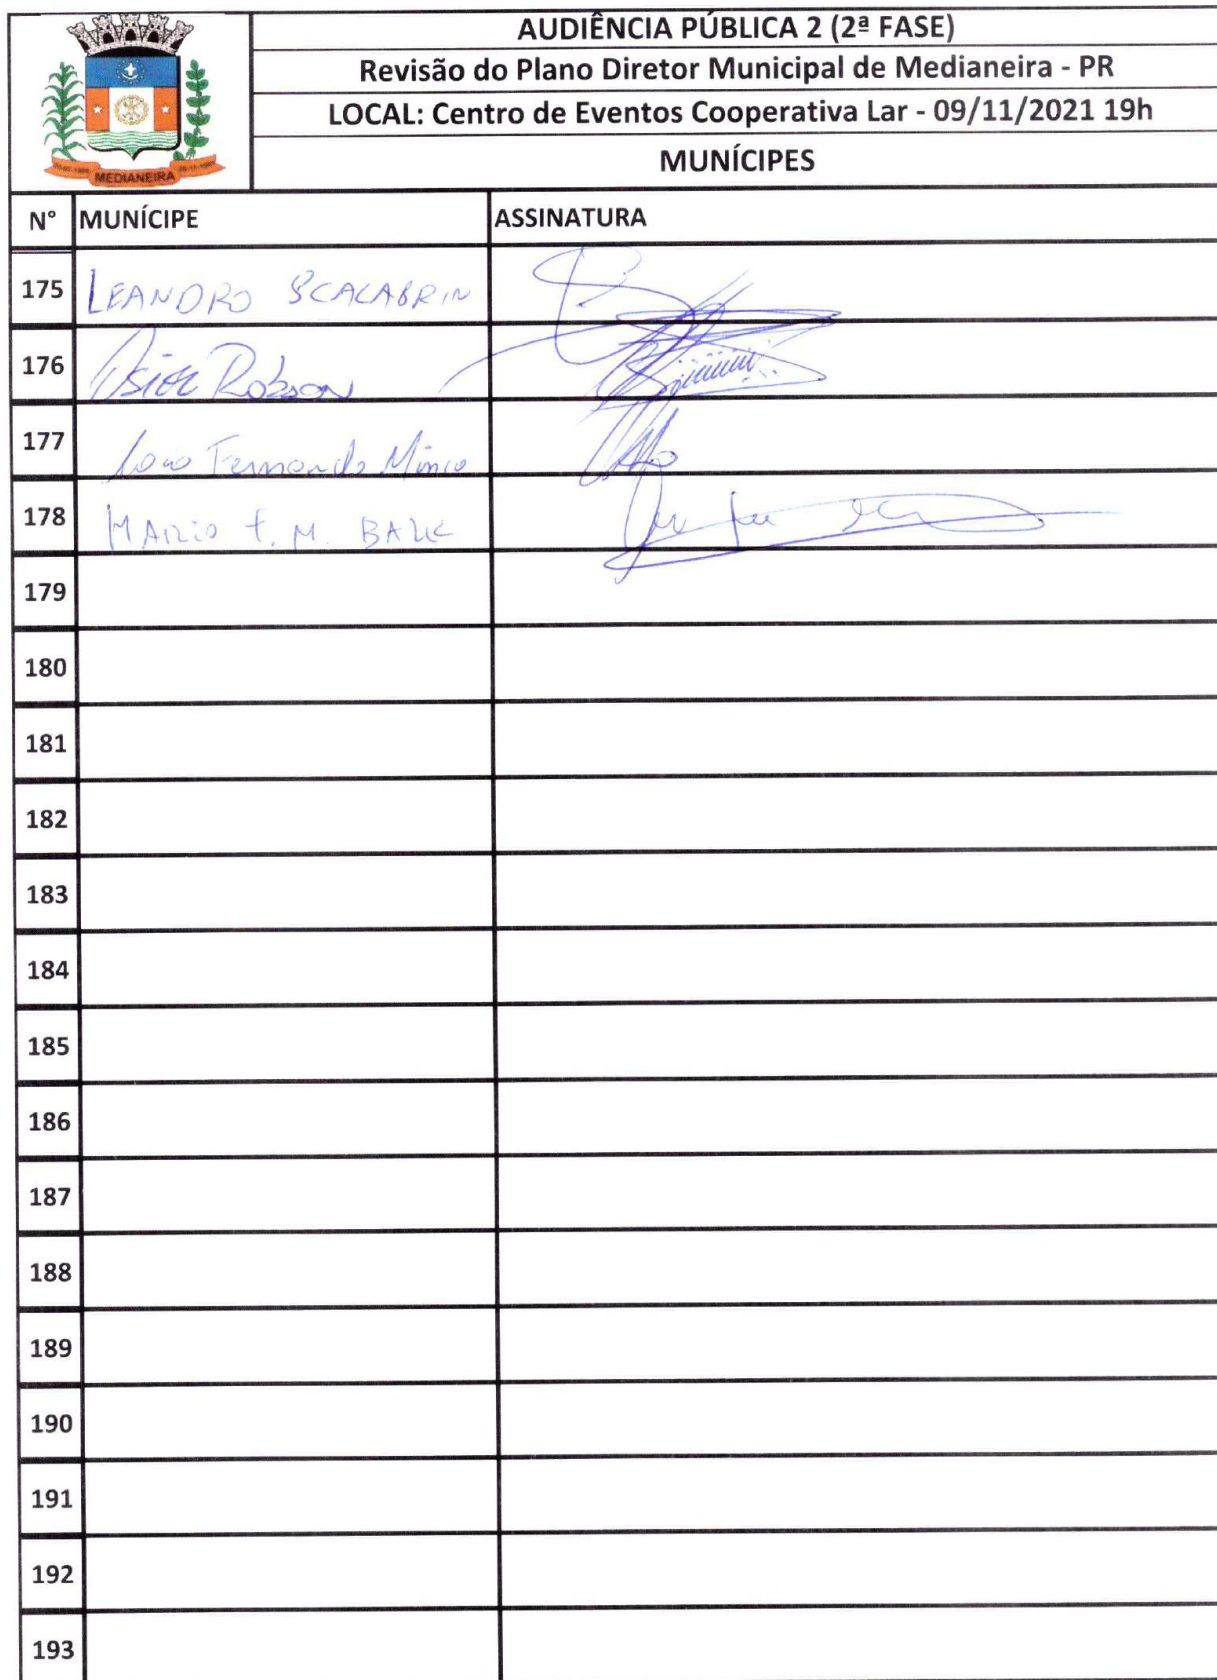 AUDIÊNCIA PÚBLICA 2 (2ª FASE)
Revisão do Plano Diretor Municipal de Medianeira - PR
LOCAL: Centro de Eventos Cooperativa Lar - 09/11/2021 19h
MUNÍCIPES
MEDIANEIRA
N° MUNÍCIPE ASSINATURA
175 LEANDRO SCALABRIN
176 Robson
177 João Fernando
178 MARIO F. M.
179
180
181
182
183
184
185
186
187
188
189
190
191
192
193